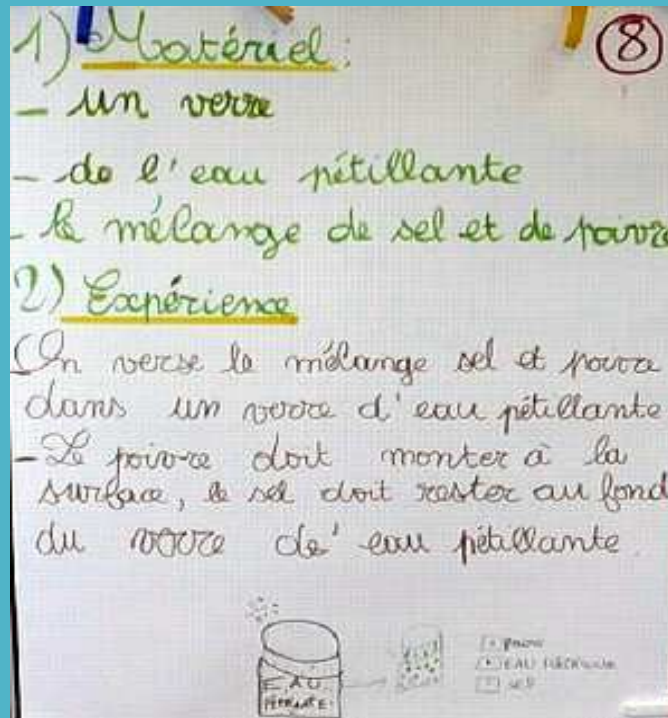 1) Matériel :
8
- un verre
- de l'eau pétillante
- le mélange de sel et de poivre
2) Expérience
On verse le mélange sel et poivre
dans un verre d'eau pétillante
- Le poivre doit monter à la
surface, le sel doit rester au fond
du verre de' eau pétillante.
EAU
PÉTILLANTE
EAU
SEL